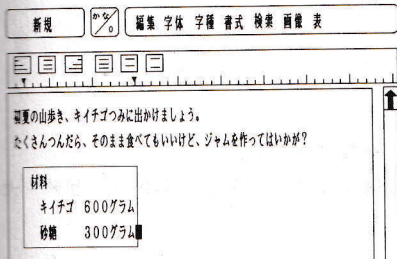 新規 かな/0 編集 字体 字種 書式 検索 画像 表
初夏の山歩き、キイチゴつみに出かけましょう。
たくさんつんだら、そのまま食べてもいいけど、ジャムを作ってはいかが?
材料
キイチゴ 600グラム
砂糖 300グラム